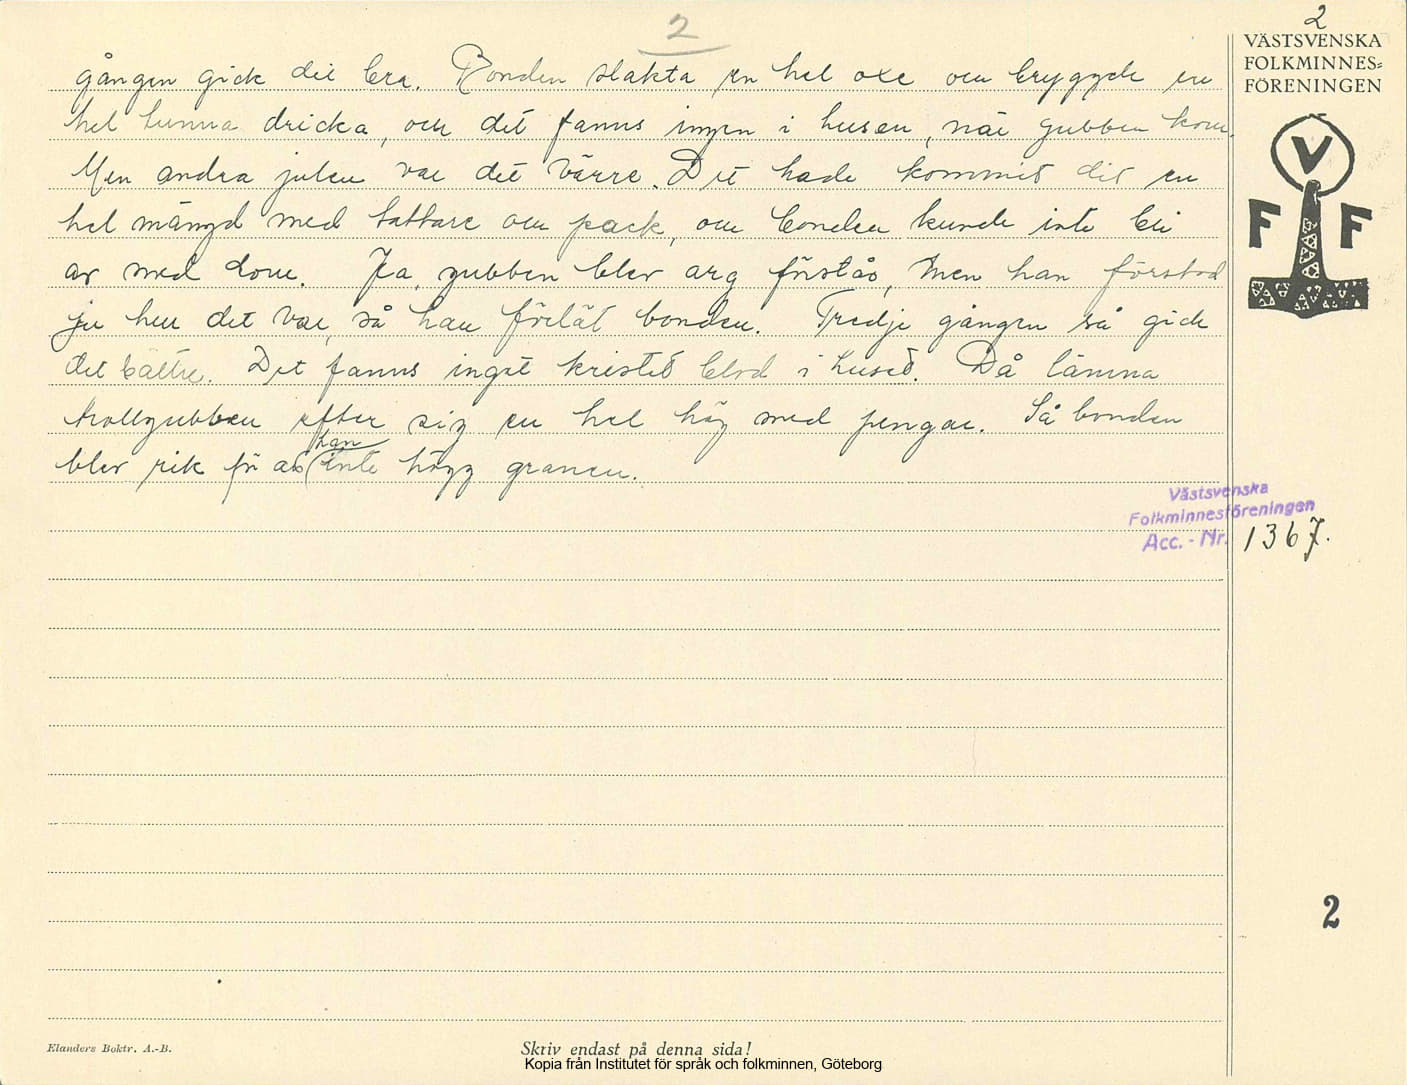 2
2
VÄSTSVENSKA
FOLKMINNES=
FÖRENINGEN
V
F F
gången gick det bra. Bonden slakta en hel oxe och bryggde en
hel tunna dricka, och det fanns ingen i husen, när gubben kom.
Men andra julen var det värre. Det hade kommit dit en
hel mängd med tattare och pack, och bonden kunde inte bli
av med dom. Ja, gubben blev arg förstås, men han förstod
ju hur det var, så han förlät bonden. Tredje gången så gick
det bättre. Det fanns inget kristet blod i huset. Då lämna
trollgubben efter sig en hel hög med pengar. Så bonden
han
blev rik för att (inte högg granen.
Västsvenska
Folkminnesföreningen
Acc. - Nr. 1367.
2
Elanders Boktr. A.-B.
Skriv endast på denna sida!
Kopia från Institutet för språk och folkminnen, Göteborg